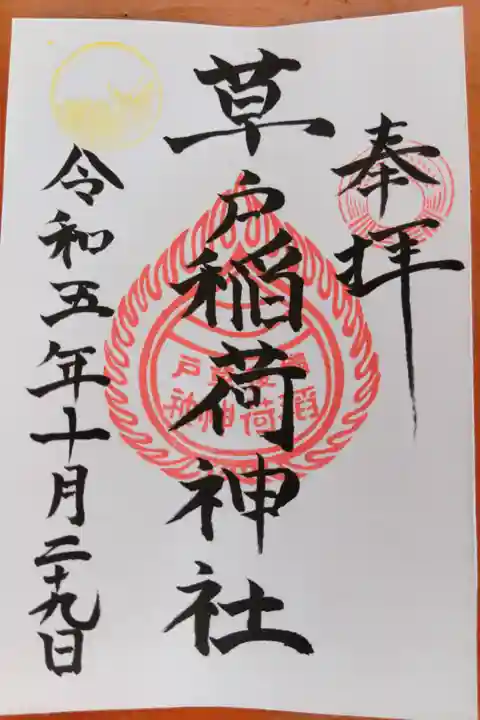 奉拝
草戸稲荷神社
令和五年十月二十九日